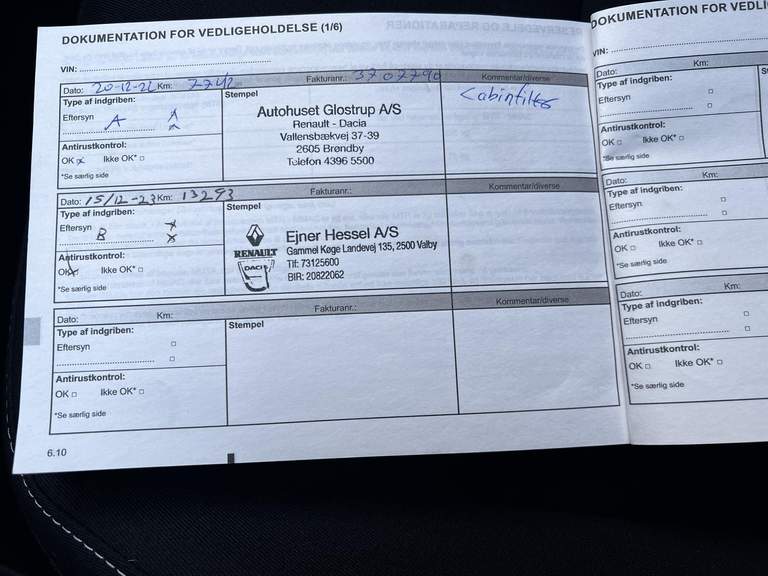 DOKUMENTATION FOR VEDLIGEHOLDELSE (1/6)
VIN:
Dato: 20-12-22 Km: 7742 Fakturanr.: 3707790 Kommentar/diverse
Type af indgriben:
Eftersyn A x
x
Antirustkontrol:
OK x Ikke OK* □
*Se særlig side
Stempel
Autohuset Glostrup A/S
Renault - Dacia
Vallensbækvej 37-39
2605 Brøndby
Telefon 4396 5500
Cabinfilter
Dato: 15/12-23 Km: 13293 Fakturanr.: Kommentar/diverse
Type af indgriben:
Eftersyn B x
x
Antirustkontrol:
OK x Ikke OK* □
*Se særlig side
Stempel
RENAULT
DACIA
Ejner Hessel A/S
Gammel Køge Landevej 135, 2500 Valby
Tlf: 73125600
BIR: 20822062
Dato: Km: Fakturanr.: Kommentar/diverse
Type af indgriben:
Eftersyn □
□
Antirustkontrol:
OK □ Ikke OK* □
*Se særlig side
Stempel
6.10
DOKUMENTATION FOR VEDLI
VIN:
Dato: Km:
Type af indgriben:
Eftersyn □
□
Antirustkontrol:
OK □ Ikke OK* □
*Se særlig side
Dato: Km:
Type af indgriben:
Eftersyn □
□
Antirustkontrol:
OK □ Ikke OK* □
*Se særlig side
Dato: Km:
Type af indgriben:
Eftersyn □
□
Antirustkontrol:
OK □ Ikke OK* □
*Se særlig side